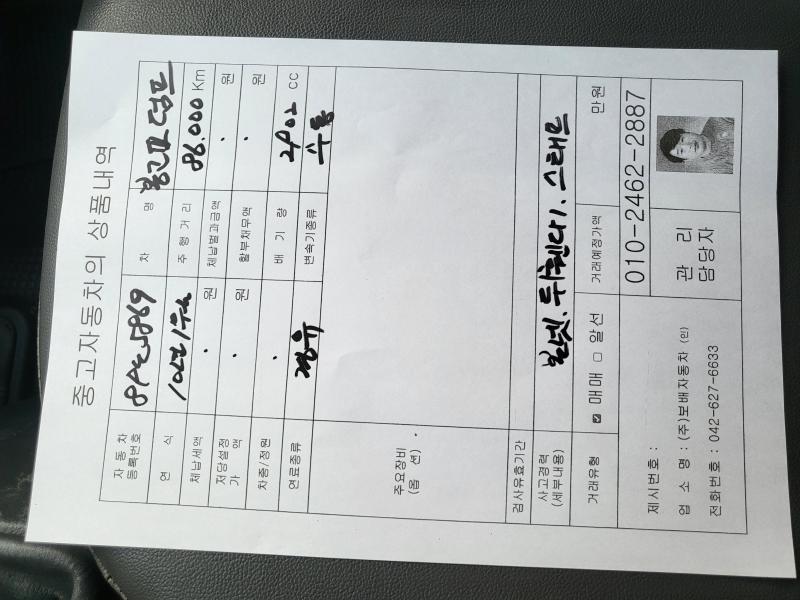 중고자동차의 상품내역
자동차 등록번호 차 명 봉고Ⅲ 덤프
연 식 주행거리 86.000 Km
체납세액 . 원 체납벌과금액 . 원
저당설정가액 . 원 할부채무액 . 원
차종/정원 . 배 기 량 2902 cc
연료종류 경유 변속기종류 수동
주요장비 (옵 션)
검사유효기간
사고경력 (세부내용) 본넷. 두휀다. 스테프
거래유형 ☑ 매매 □ 알선 거래예정가액 만원
제시번호 :
업 소 명 : (주)보배자동차 (인)
전화번호 : 042-627-6633
관 리 담당자
010-2462-2887